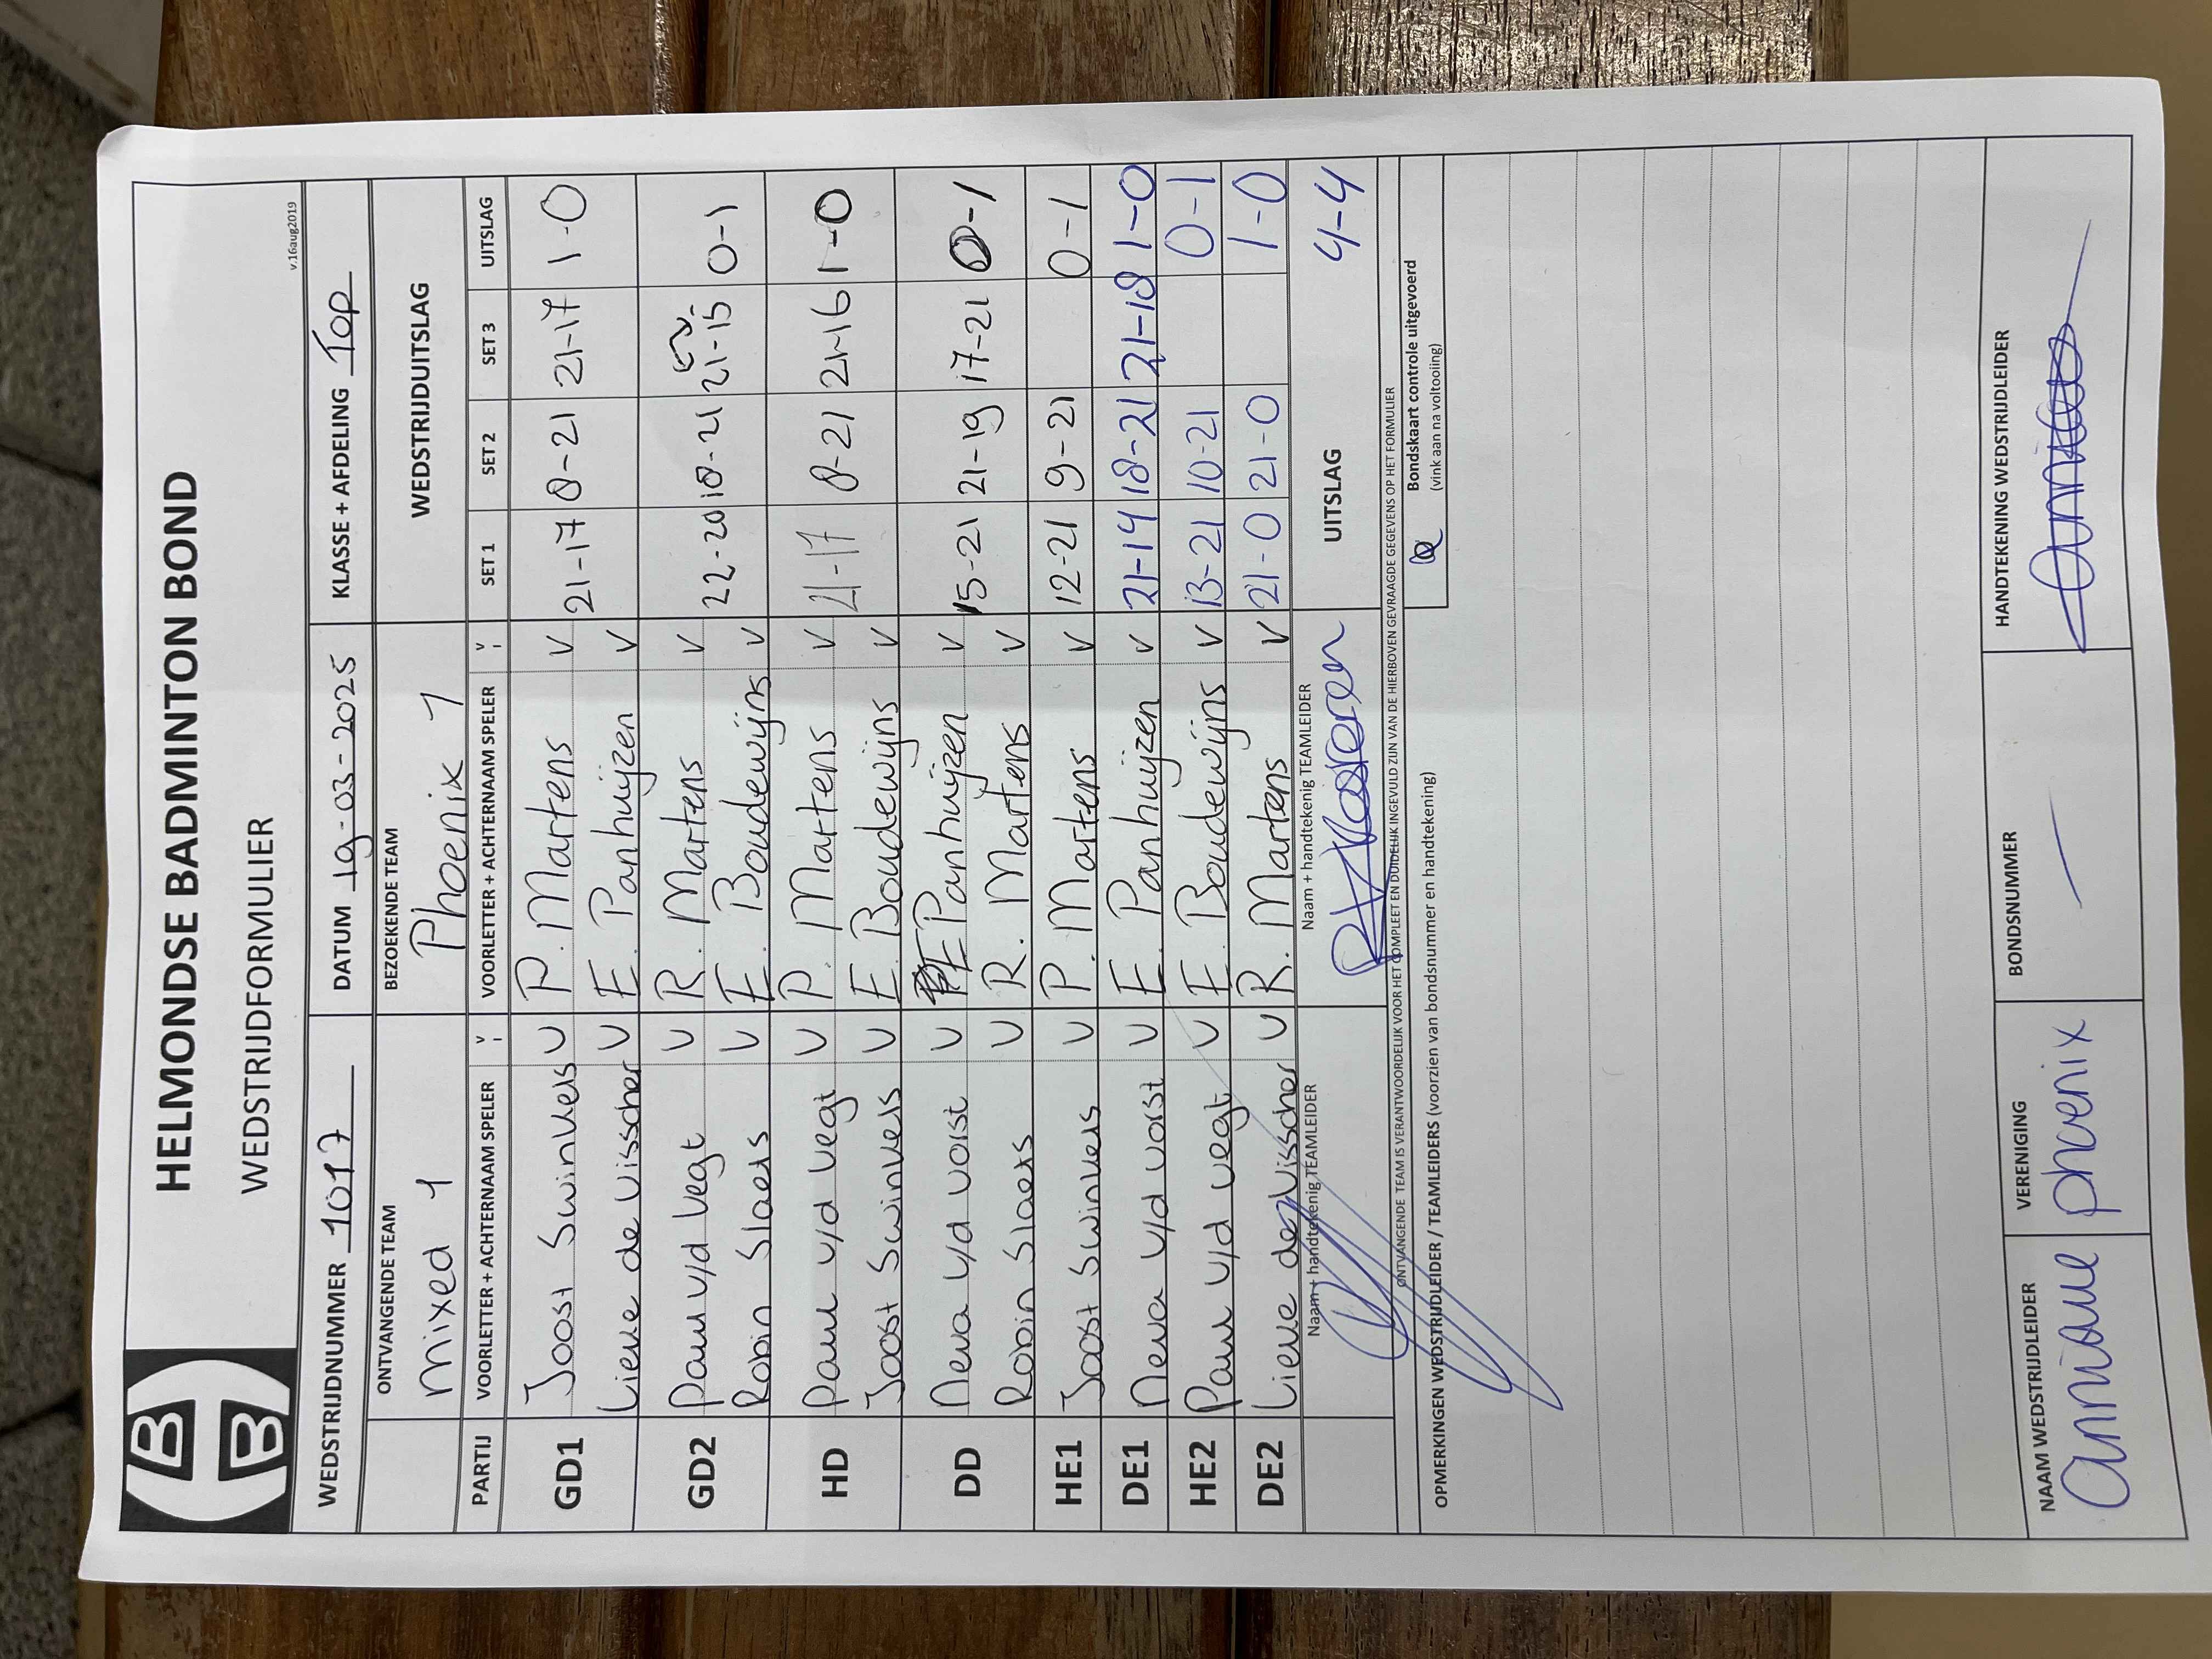 HELMONDSE BADMINTON BOND
WEDSTRIJDFORMULIER
v.16aug2019
WEDSTRIJDNUMMER 1017 DATUM 19-03-2025 KLASSE + AFDELING Top
ONTVANGENDE TEAM BEZOEKENDE TEAM WEDSTRIJDUITSLAG
Mixed 1 Phoenix 1
PARTIJ VOORLETTER + ACHTERNAAM SPELER V VOORLETTER + ACHTERNAAM SPELER V SET 1 SET 2 SET 3 UITSLAG
GD1 Joost Swinkels V P. Martens V 21-17 8-21 21-17 1-0
Lieve de Visscher V E. Panhuijzen V
GD2 Paul v/d Vegt V R. Martens V 22-20 18-21 21-15 0-1
Robin Slaets V E. Boudewijns V
HD Paul v/d Vegt V P. Martens V 21-17 8-21 21-16 1-0
Joost Swinkels V E. Boudewijns V
DD Neva v/d Vorst V E Panhuijzen V 15-21 21-19 17-21 0-1
Robin Slaets V R. Martens V
HE1 Joost Swinkels V P. Martens V 12-21 9-21 0-1
DE1 Neva v/d Vorst V E. Panhuijzen V 21-14 18-21 21-18 1-0
HE2 Paul v/d Vegt V E. Boudewijns V 13-21 10-21 0-1
DE2 Lieve de Visscher V R. Martens V 21-0 21-0 1-0
Naam + handtekenig TEAMLEIDER Naam + handtekenig TEAMLEIDER UITSLAG 4-4
ONTVANGENDE TEAM IS VERANTWOORDELIJK VOOR HET COMPLEET EN DUIDELIJK INGEVULD ZIJN VAN DE HIERBOVEN GEVRAAGDE GEGEVENS OP HET FORMULIER
OPMERKINGEN WEDSTRIJDLEIDER / TEAMLEIDERS (voorzien van bondsnummer en handtekening)
Bondskaart controle uitgevoerd
(vink aan na voltooiing)
NAAM WEDSTRIJDLEIDER VERENIGING BONDSNUMMER HANDTEKENING WEDSTRIJDLEIDER
phoenix —